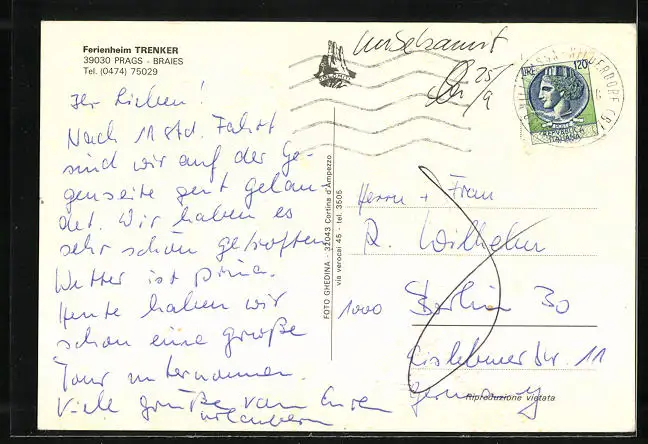 Ferienheim TRENKER
39030 PRAGS - BRAIES
Tel. (0474) 75029
Ihr Lieben!
Nach 11 Std. Fahrt
sind wir auf der Ge-
genseite gut gelan-
det. Wir haben es
sehr schön getroffen
Wetter ist prima.
Heute haben wir
schon eine große
Tour unternommen.
Viele Grüße von Euren
Urlaubern
FOTO GHEDINA - 32043 Cortina d'Ampezzo
via verocai 45 - tel. 3505
unbekannt
25/9
LIRE 120
REPVBBLICA
ITALIANA
Herrn + Frau
R. Wilhelm
1000 Berlin 30
Eislebener Str. 11
Germany
Riproduzione vietata